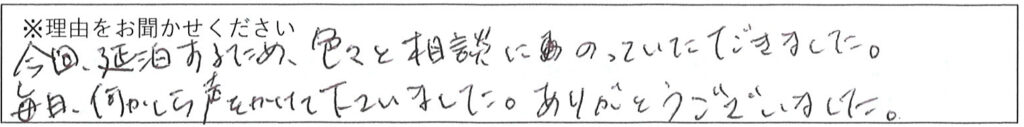 ※理由をお聞かせください
今回、延泊するため、色々と相談にのっていただきました。
毎日、何かしら声をかけて下さいました。ありがとうございました。